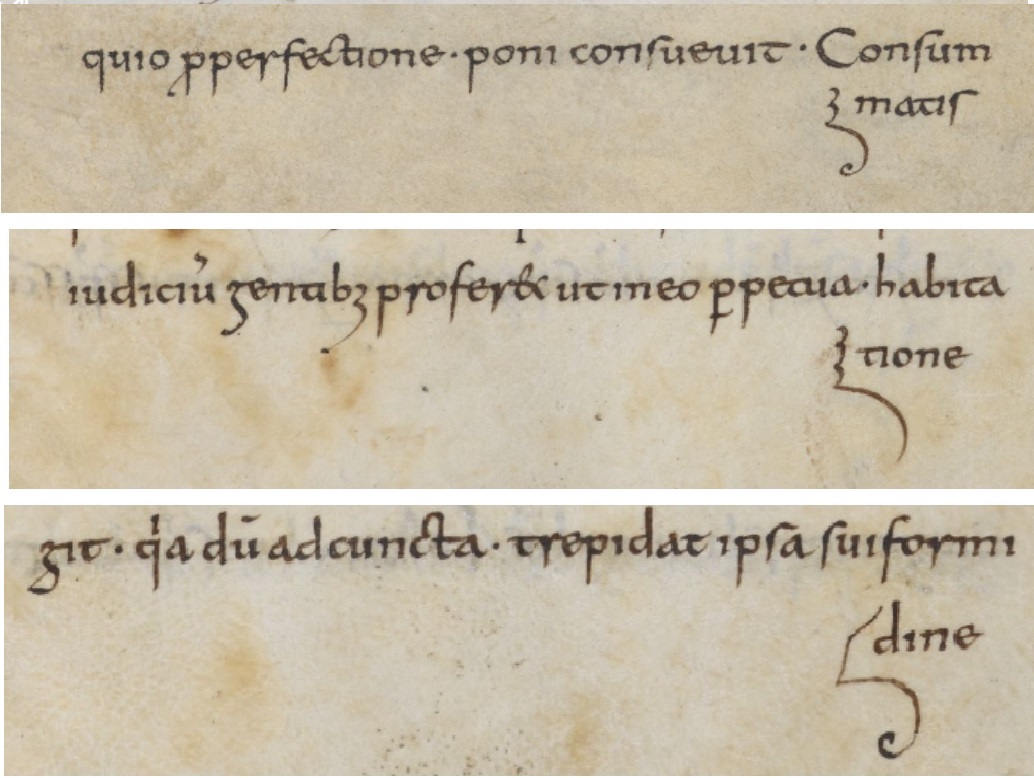 quio ꝓperfectione · poni consuevit · Consum
matis
iudiciū gentibꝫ profer& ut in eo ꝑpetua · habita
tione
git · qͥa dū ad cuncta · trepidat ipsā sui formi
dine